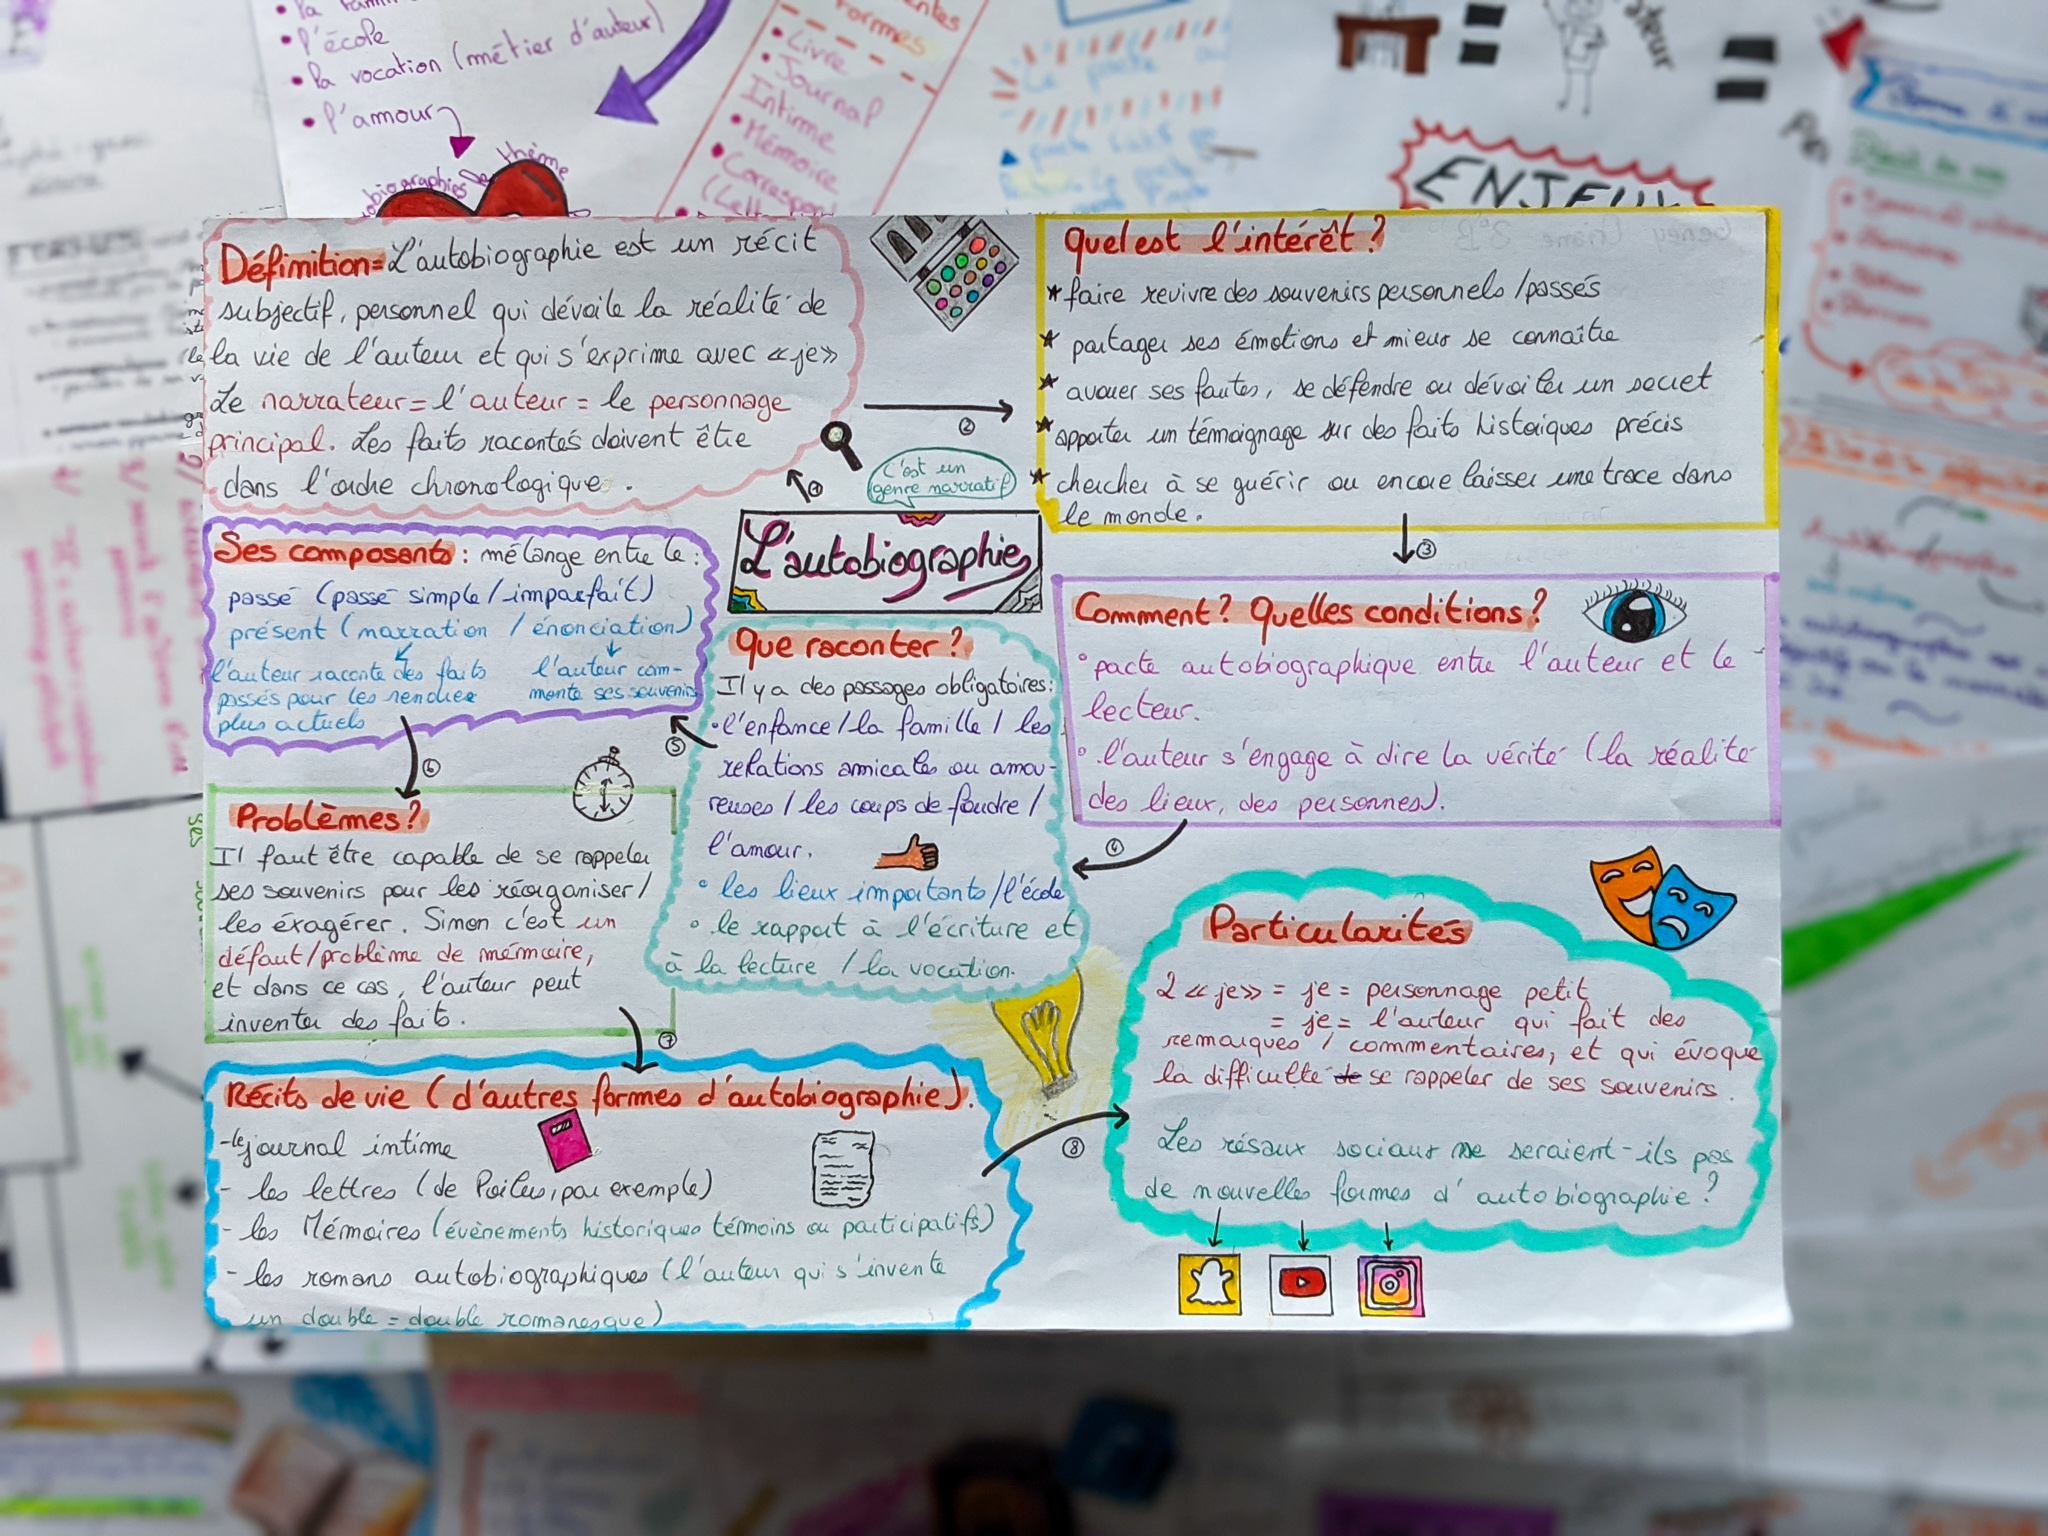 la
l'école
la vocation (métier d'auteur)
l'amour
biographies de
thème
formes
Livre
Journal
Intime
Mémoire
Correspon
(Lett
Le pacte
ENJEUX
Définition= L'autobiographie est un récit
subjectif, personnel qui dévoile la réalité de
la vie de l'auteur et qui s'exprime avec «je»
Le narrateur = l'auteur = le personnage
principal. Les faits racontés doivent être
dans l'ordre chronologique.
1
2
C'est un
genre narratif
L'autobiographie
Quel est l'intérêt ?
★ faire revivre des souvenirs personnels /passés
★ partager ses émotions et mieux se connaître
★ avouer ses fautes, se défendre ou dévoiler un secret
★ apporter un témoignage sur des faits historiques précis
★ chercher à se guérir ou encore laisser une trace dans
le monde.
3
Comment ? Quelles conditions ?
° pacte autobiographique entre l'auteur et le
lecteur.
° l'auteur s'engage à dire la vérité (la réalité
des lieux, des personnes).
4
Que raconter ?
Il y a des passages obligatoires :
• l'enfance / la famille / les
relations amicales ou amou-
reuses / les coups de foudre /
l'amour.
° les lieux importants /l'école
° le rapport à l'écriture et
à la lecture / la vocation.
5
Ses composants : mélange entre le :
passé (passé simple / imparfait)
présent (narration / énonciation)
l'auteur raconte des faits
passés pour les rendre
plus actuels
l'auteur com-
mente ses souvenirs
6
Problèmes ?
Il faut être capable de se rappeler
ses souvenirs pour les réorganiser /
les éxagérer. Sinon c'est un
défaut/problème de mémoire,
et dans ce cas, l'auteur peut
inventer des faits.
7
Récits de vie (d'autres formes d'autobiographie).
- le journal intime
- les lettres (de Poilus, par exemple)
- les Mémoires (évènements historiques témoins ou participatifs)
- les romans autobiographiques (l'auteur qui s'invente
un double = double romanesque)
8
Particularités
2 «je» = je = personnage petit
= je = l'auteur qui fait des
remarques / commentaires, et qui évoque
la difficulté de se rappeler de ses souvenirs.
Les résaux sociaux ne seraient-ils pas
de nouvelles formes d'autobiographie ?